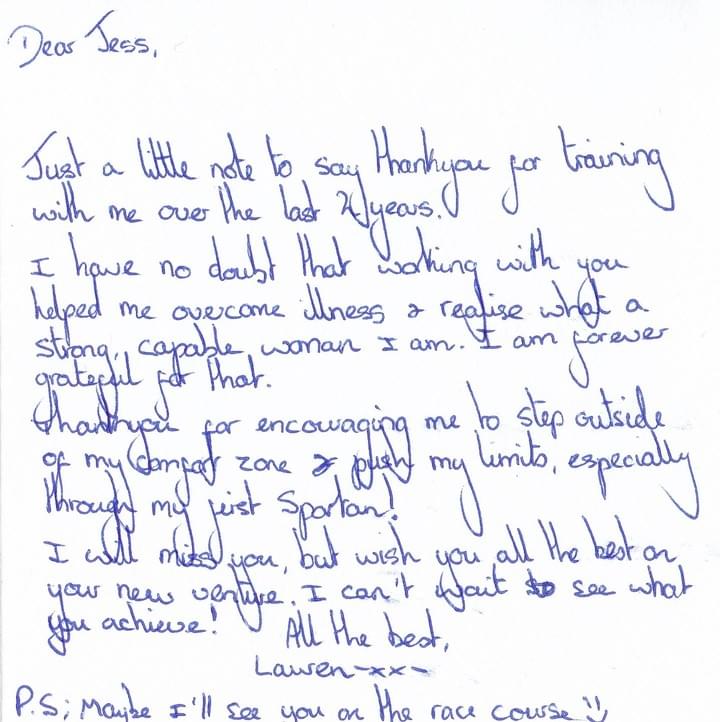 Dear Jess,
Just a little note to say thankyou for training
with me over the last 2 years.
I have no doubt that working with you
helped me overcome illness & realise what a
strong, capable woman I am. I am forever
grateful for that.
Thankyou for encouraging me to step outside
of my comfort zone & push my limits, especially
through my first Spartan!
I will miss you, but wish you all the best on
your new venture. I can't wait to see what
you achieve!
All the best,
Lauren -xx-
P.S; Maybe I'll see you on the race course!!